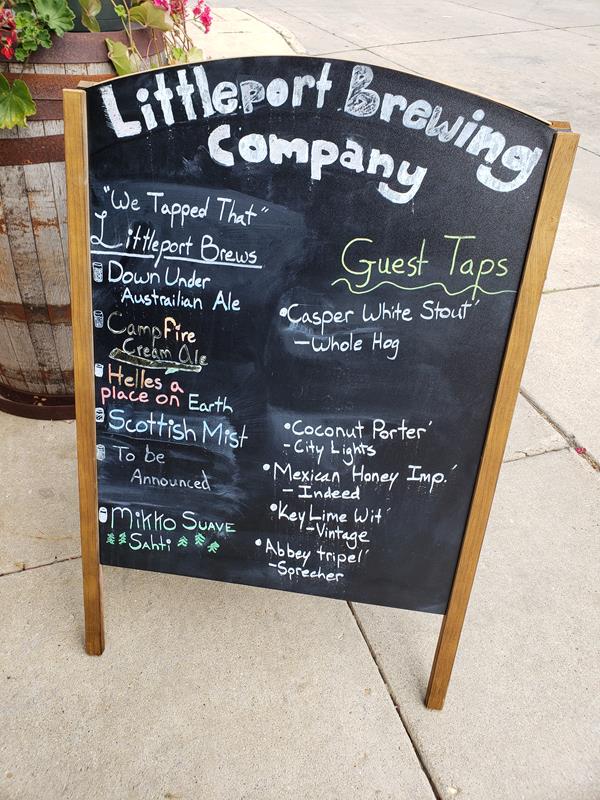 Littleport Brewing
Company
"We Tapped That"
Littleport Brews
Down Under
Austrailian Ale
Campfire
Cream Ale
Helles a
place on Earth
Scottish Mist
To be
Announced
Mikko Suave
Sahti
Guest Taps
•Casper White Stout'
-Whole Hog
•Coconut Porter'
-City Lights
•Mexican Honey Imp.'
-Indeed
•Key Lime Wit'
-Vintage
•Abbey tripel'
-Sprecher